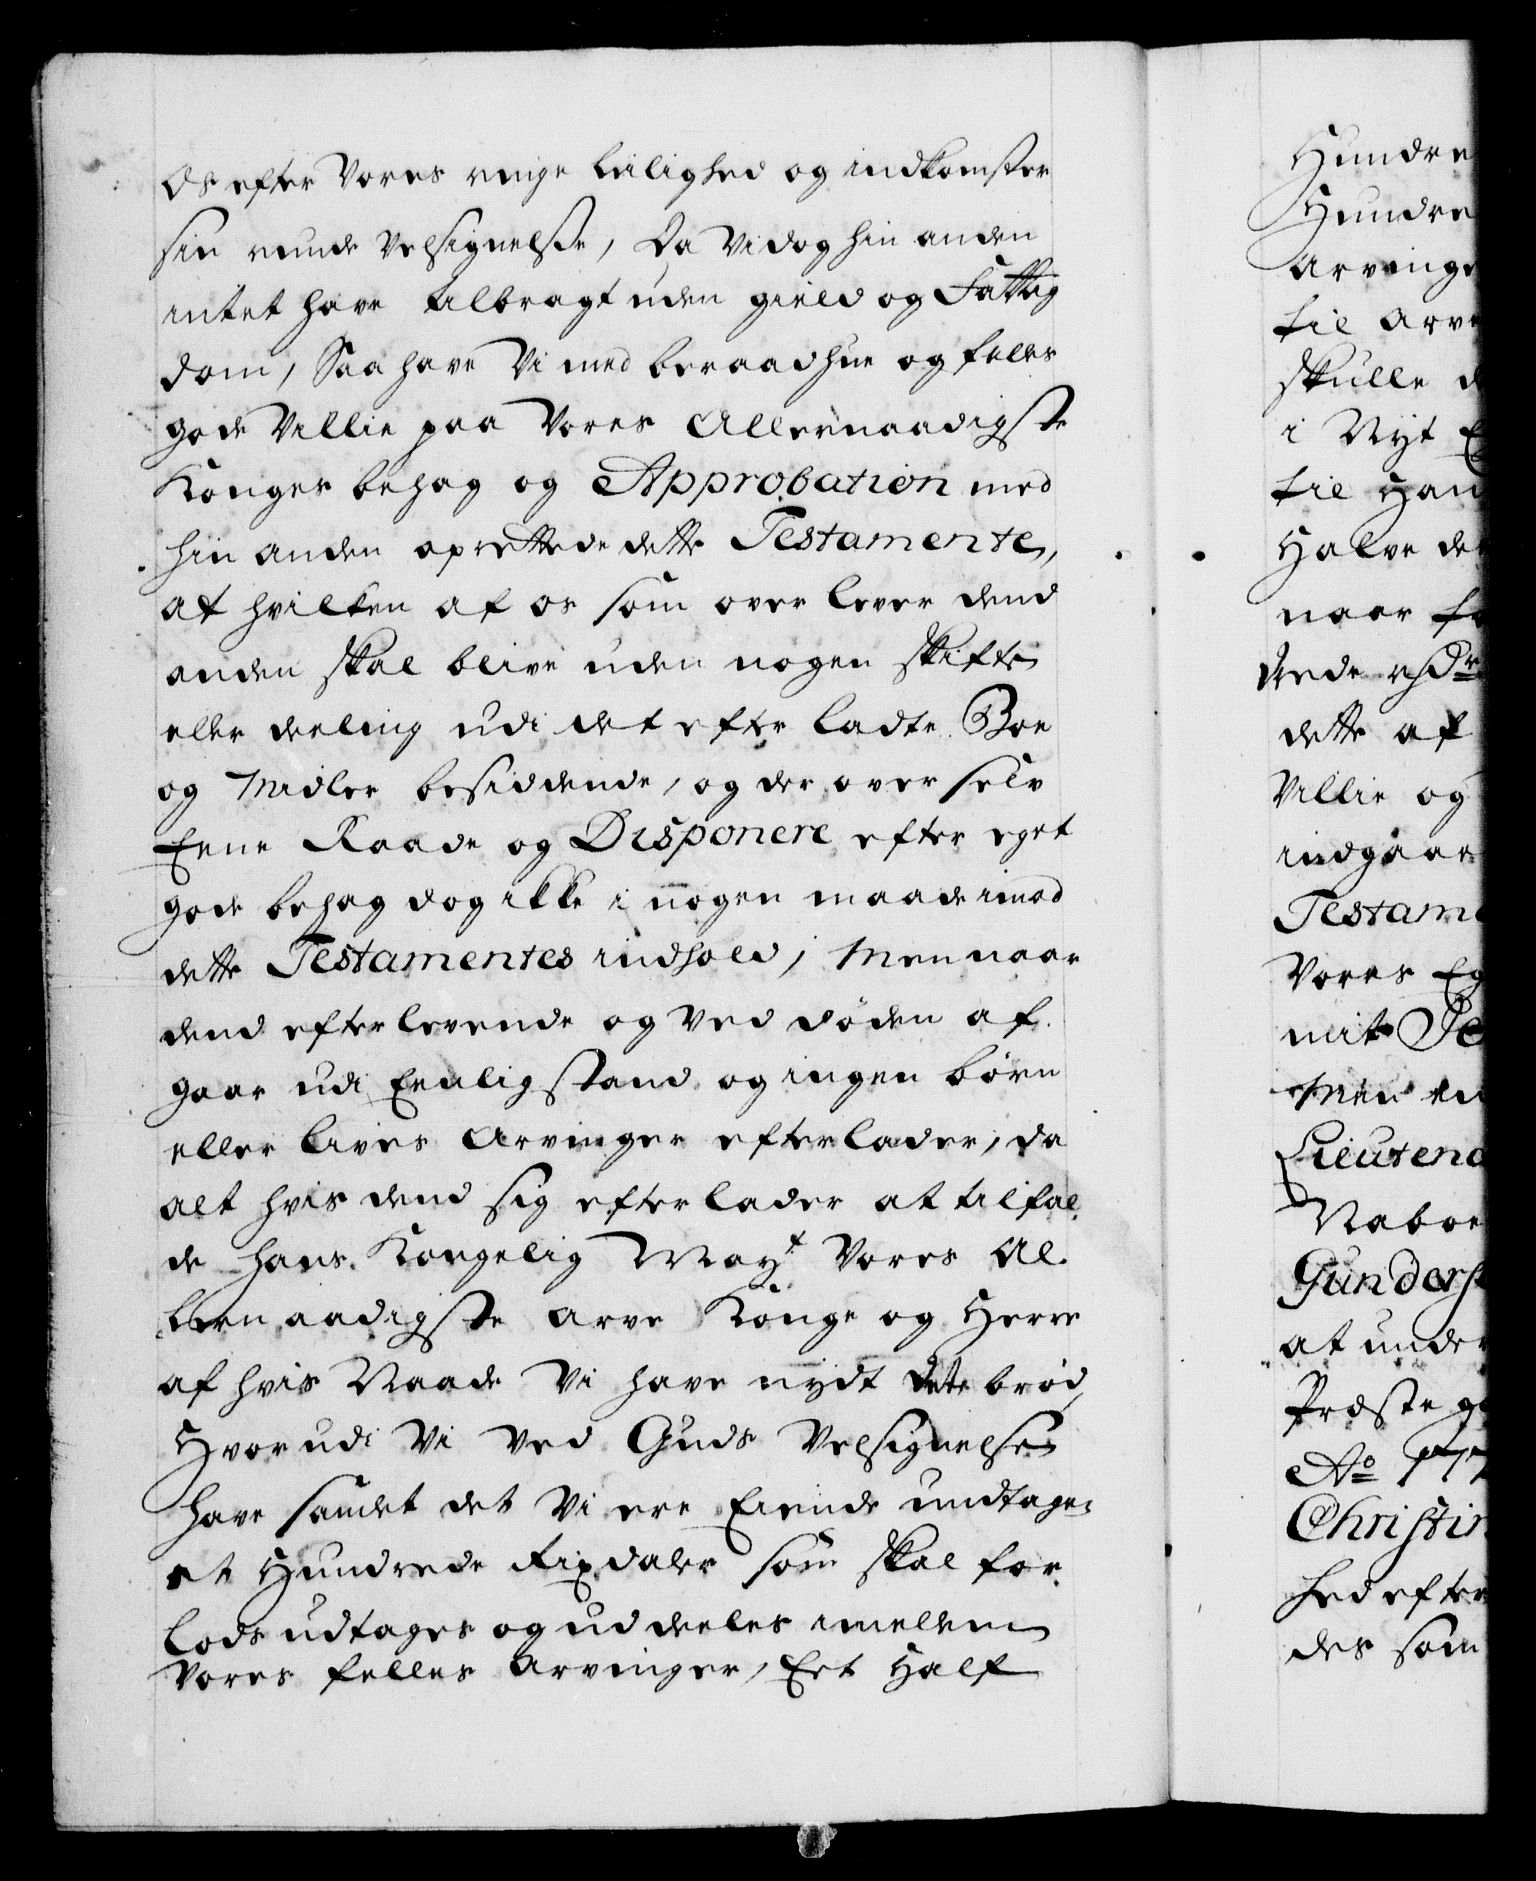 Os efter Vores ringe leilighed og indkomster
sin runde Velsignelse, Da Vi dog hin anden
intet have tilbragt uden gield og Fattig
dom, Saa have Vi med beraad hue og felles
gode Villie paa Vores Allernaadigste
Konges behag og Approbation med
hin anden oprettede dette Testamente,
at hvilken af os som over lever dend
anden skal blive uden nogen skifte
eller deeling udi det efter ladte Boe
og Midler besiddende, og der over selv
Eene Raade og Disponere efter eget
gode behag dog ikke i nogen maade imod
dette Testamentes indhold; Men naar
dend efterlevende og Ved døden af
gaar udi Eenlig stand og ingen børn
eller lives Arvinger efterlader, da
alt hvis dend sig efterlader at tilfal
de hans Kongelig Mayt Vores Al
lernaadigste arve Konge og Herre
af hvis Naade Vi have nydt dette brød,
Hvorudi Vi Ved Guds Velsignelse
have samlet det Vi ere Eiende undtagen
et Hundrede Rixdaler som skal for
lods udtages og uddeeles imellem
Vores felles Arvinger, Eet Half
Hundre
Hundre
Arvinge
til arve
skulle d
i Nyt E
til Han
Halve de
naar fo
rede rhdr
dette af
Villie og
indgaar
Testame
Vores Eg
mit Pe
Men en
Lieutena
Naboe
Gunders
at under
Præste g
Ao 177
Christin
hed efter
des som